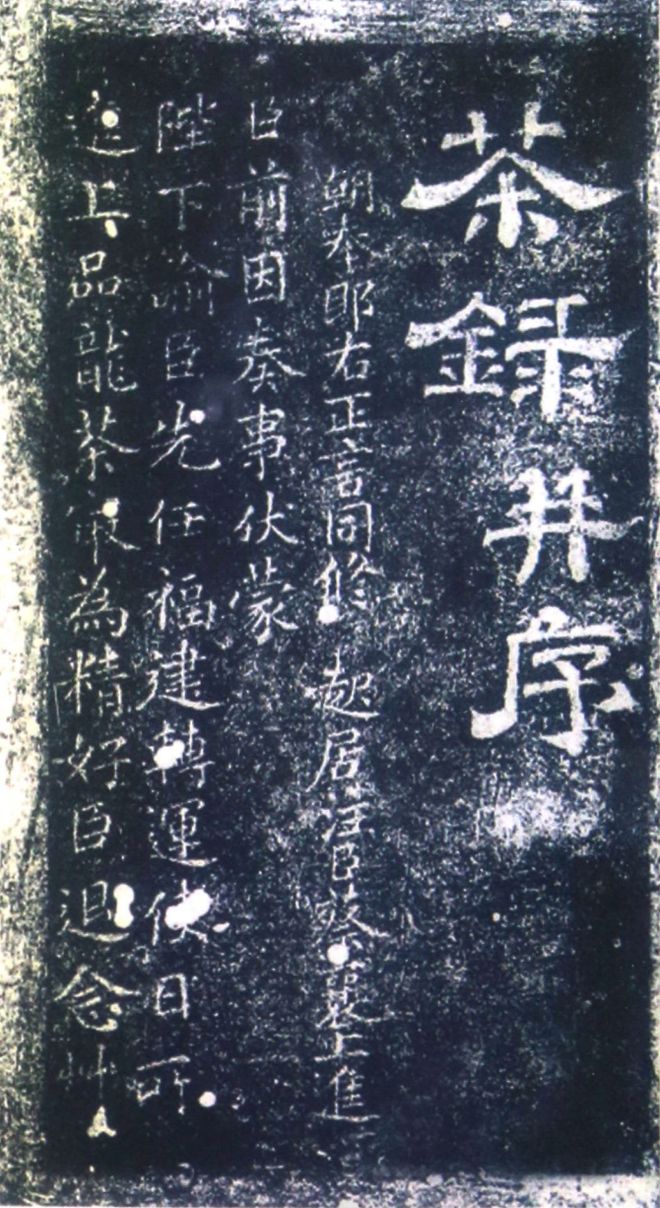 茶録并序
朝奉郎右正言同修起居注臣蔡襄上進
臣前因奏事伏蒙
陛下諭臣先任福建轉運使日所
進上品龍茶最為精好臣退念艸